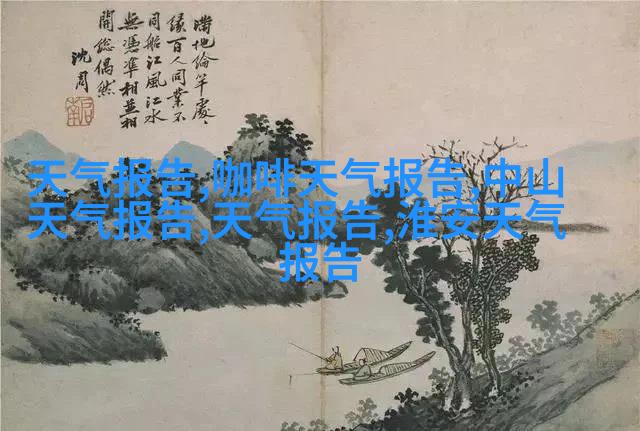 滿地綸竿處〻
緣百人同業不
同船江風江水
無憑準相並相
開總偶然
沈周
天气报告,咖啡天气报告,中山
天气报告,天气报告,淮安天气
报告